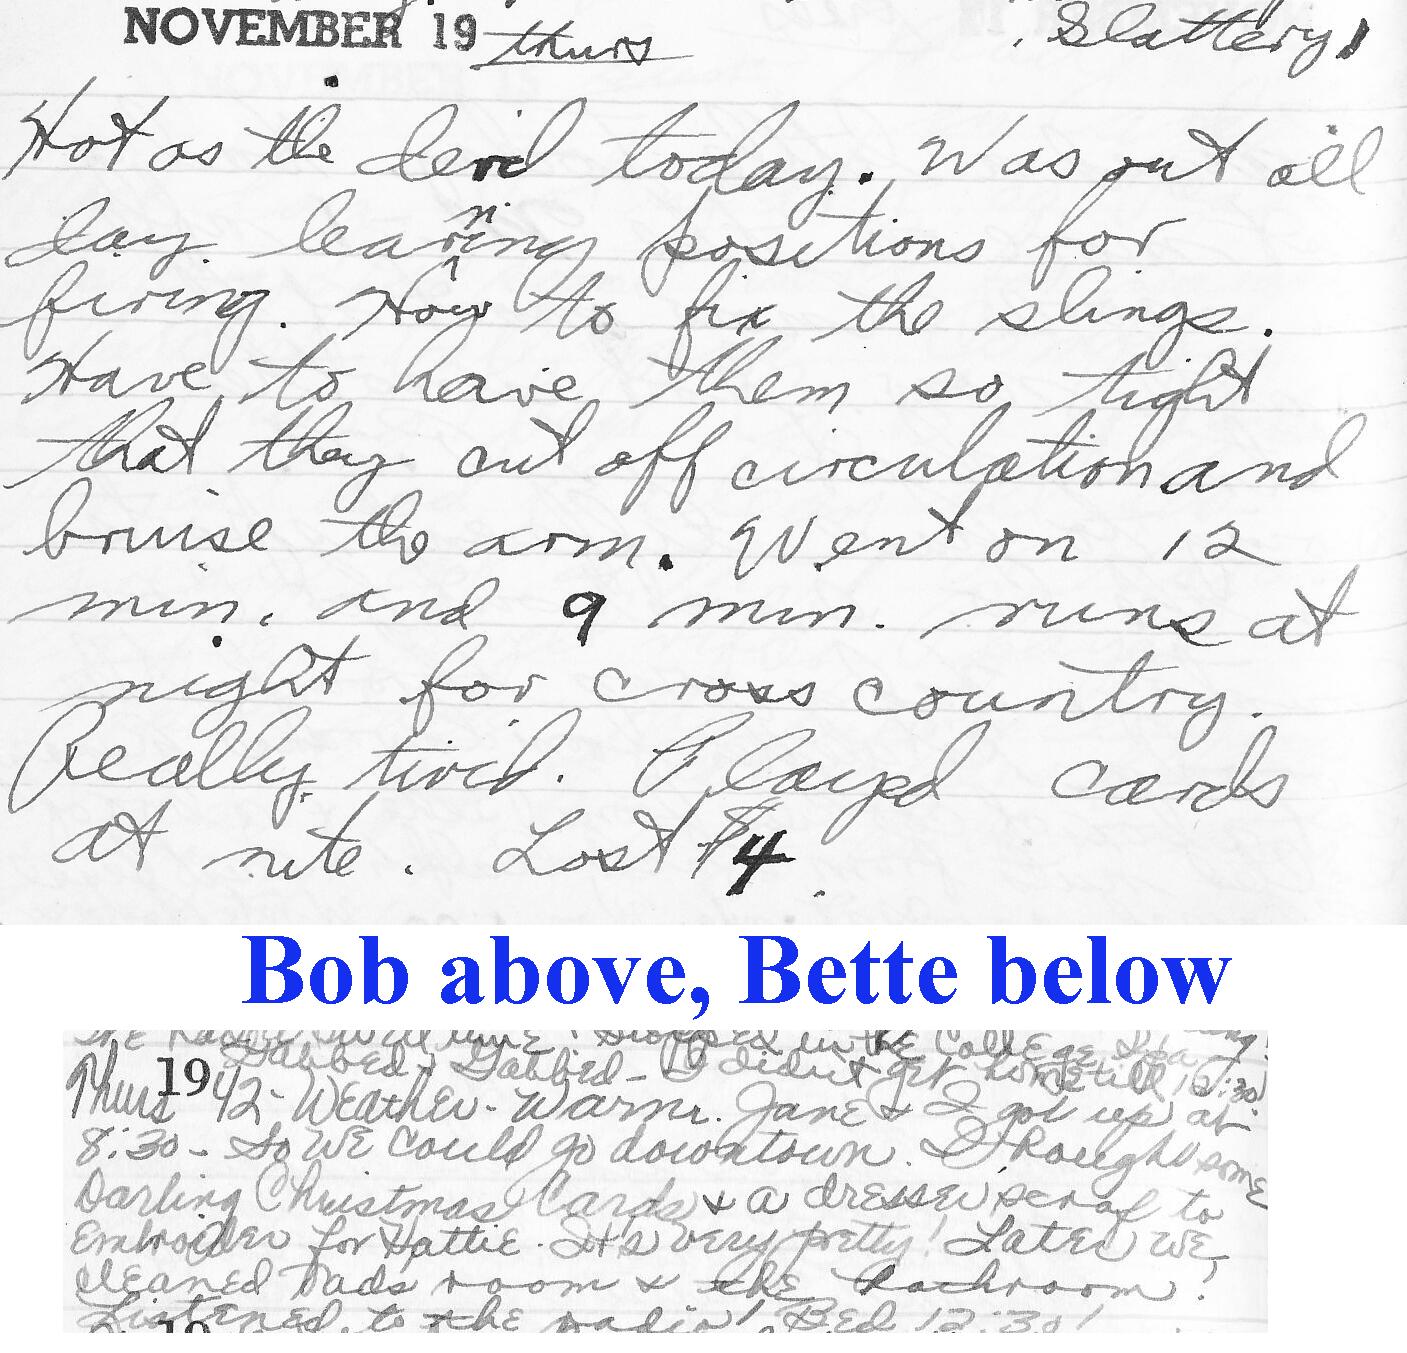 NOVEMBER 19 thurs Slattery
Hot as the devil today. Was out all
day learning positions for
firing. How to fix the slings.
Have to have them so tight
that they cut off circulation and
bruise the arm. Went on 12
min. and 9 min. runs at
night for cross country.
Really tired. Played cards
at nite. Lost $4.
Bob above, Bette below
in the College
Gabbed - Gabbed - I didn't get home till 12:30!
Thurs 19 42 - Weather - Warm. Jane & I got up at
8:30 - So we could go downtown. I bought some
Darling Christmas Cards & a dresser scarf to
Embroider for Hattie. It's very pretty! Later we
cleaned Dads room & the bathroom!
Listened to the radio! Bed 12:30!
19